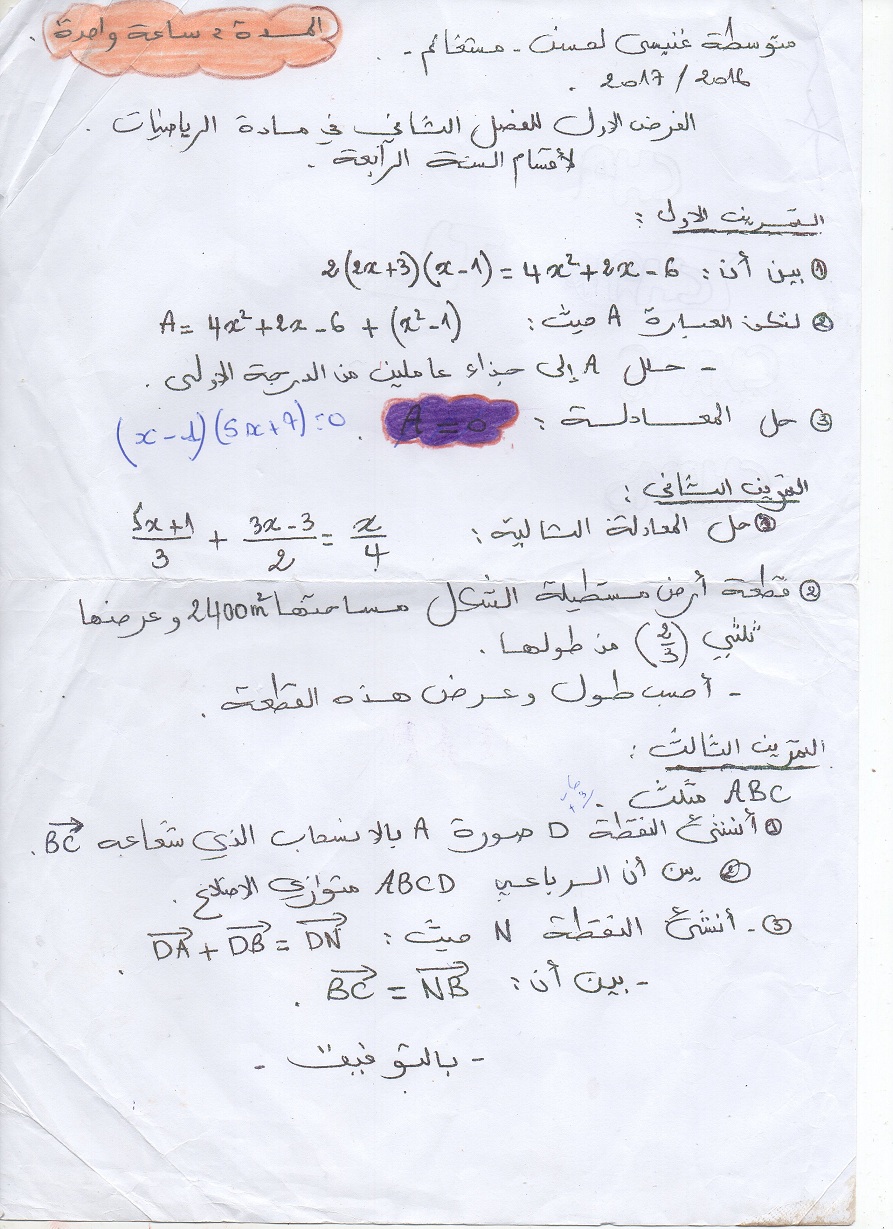 المدة : ساعة واحدة .
متوسطة غنيسي لحسن - مستغانم -
2016 / 2017 .
الفرض الاول للفصل الثاني في مادة الرياضيات .
لأقسام السنة الرابعة .
التمرين الاول :
① بين أن : 2(2x+3)(x-1) = 4x²+2x-6
② لتكن العبارة A حيث : A = 4x²+2x-6+(x²-1)
- حلل A إلى جذاء عاملين من الدرجة الاولى .
③ حل المعادلة : A=0 . (x-1)(5x+7)=0
التمرين الثاني :
① حل المعادلة التالية : (5x+1)/3 + (3x-3)/2 = x/4
② قطعة أرض مستطيلة الشكل مساحتها 2400m² وعرضها
ثلثي (2/3) من طولها .
- أحسب طول وعرض هذه القطعة .
التمرين الثالث :
ABC مثلث .
① أنشئ النقطة D صورة A بالانسحاب الذي شعاعه BC→ .
② بين أن الرباعي ABCD متوازي الاضلاع .
③ - أنشئ النقطة N حيث : DA→ + DB→ = DN→ .
- بين أن : BC→ = NB→ .
- بالتوفيق -